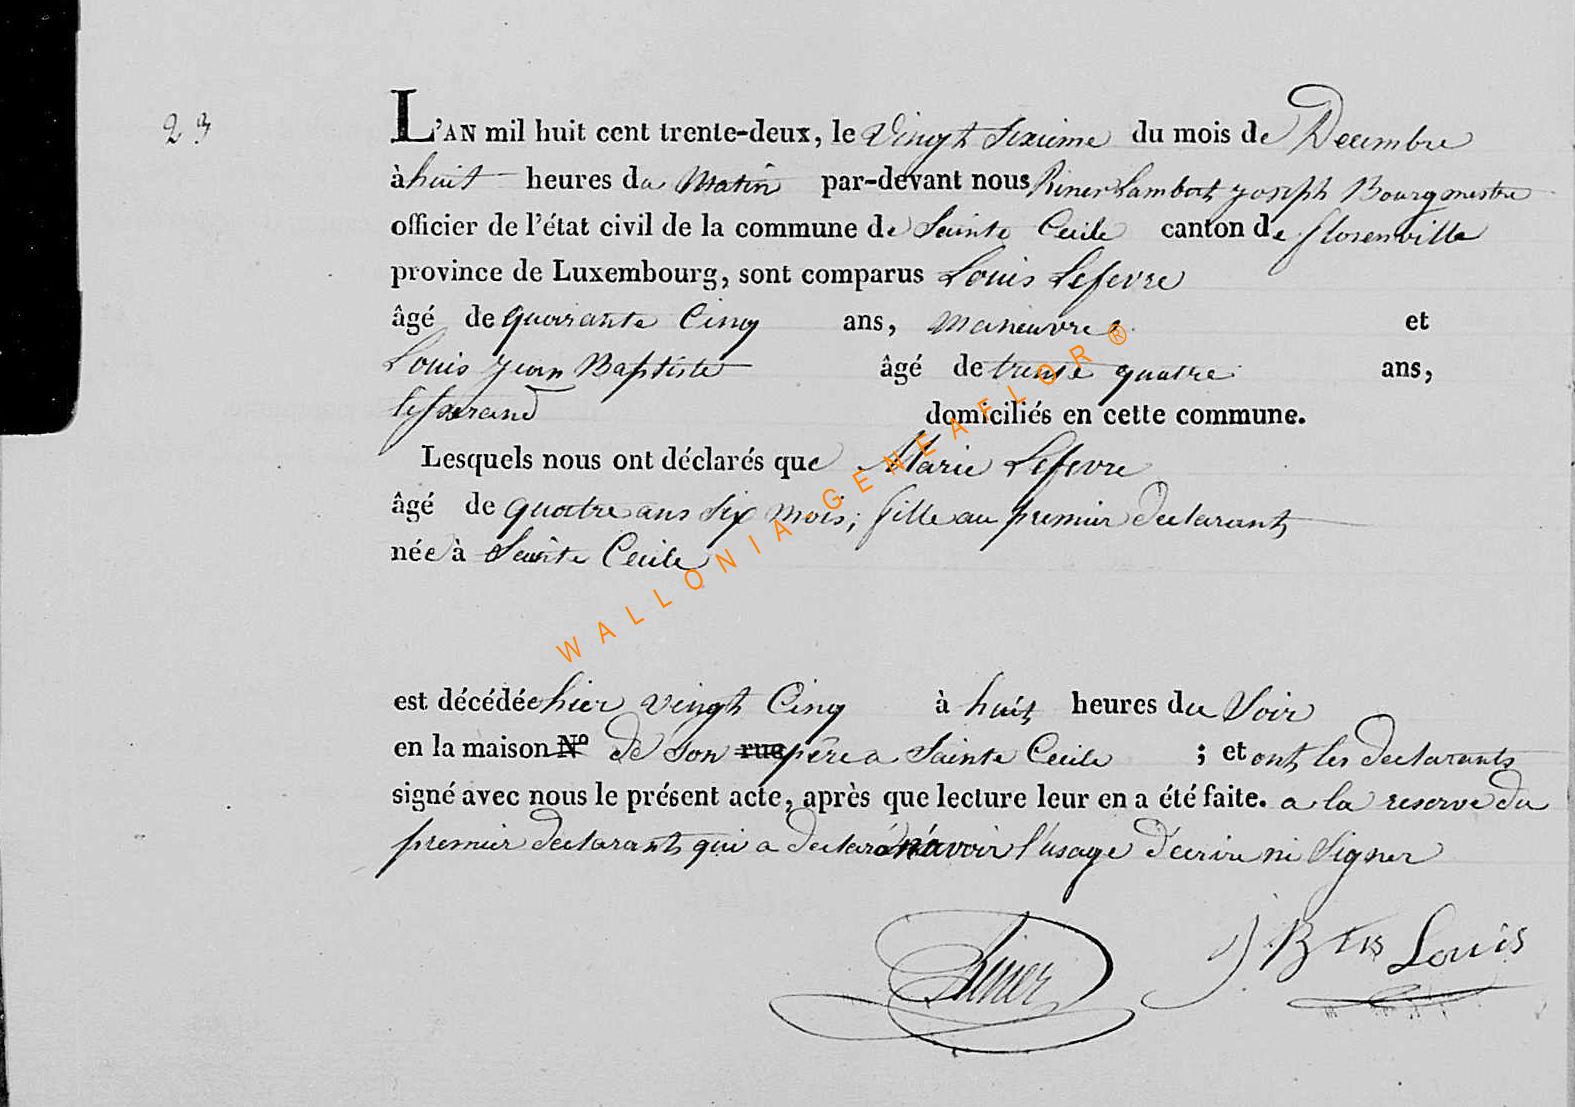 23
L'AN mil huit cent trente-deux, le Vingt Sixieme du mois de Decembre
à huit heures du Matin par-devant nous Riner Lambert Joseph Bourgmestre
officier de l'état civil de la commune de Sainte Cecile canton de florenville
province de Luxembourg, sont comparus Louis Lefevre
âgé de quarante Cinq ans, maneuvre et
Louis Jean Baptiste âgé de trente quatre ans,
domiciliés en cette commune.
Lesquels nous ont déclarés que Marie Lefevre
âgé de quatre ans six mois, fille au premier declarant
née à Sainte Cecile
est décédée hier vingt Cinq à huit heures du Soir
en la maison N° de son rue père a Sainte Cecile ; et ont les declarants
signé avec nous le présent acte, après que lecture leur en a été faite. a la reserve du
premier declarant qui a declaré n'avoir l'usage d'ecrire ni Signer
Riner J. Bte Louis
WALLONIA-GENEAFLOR®